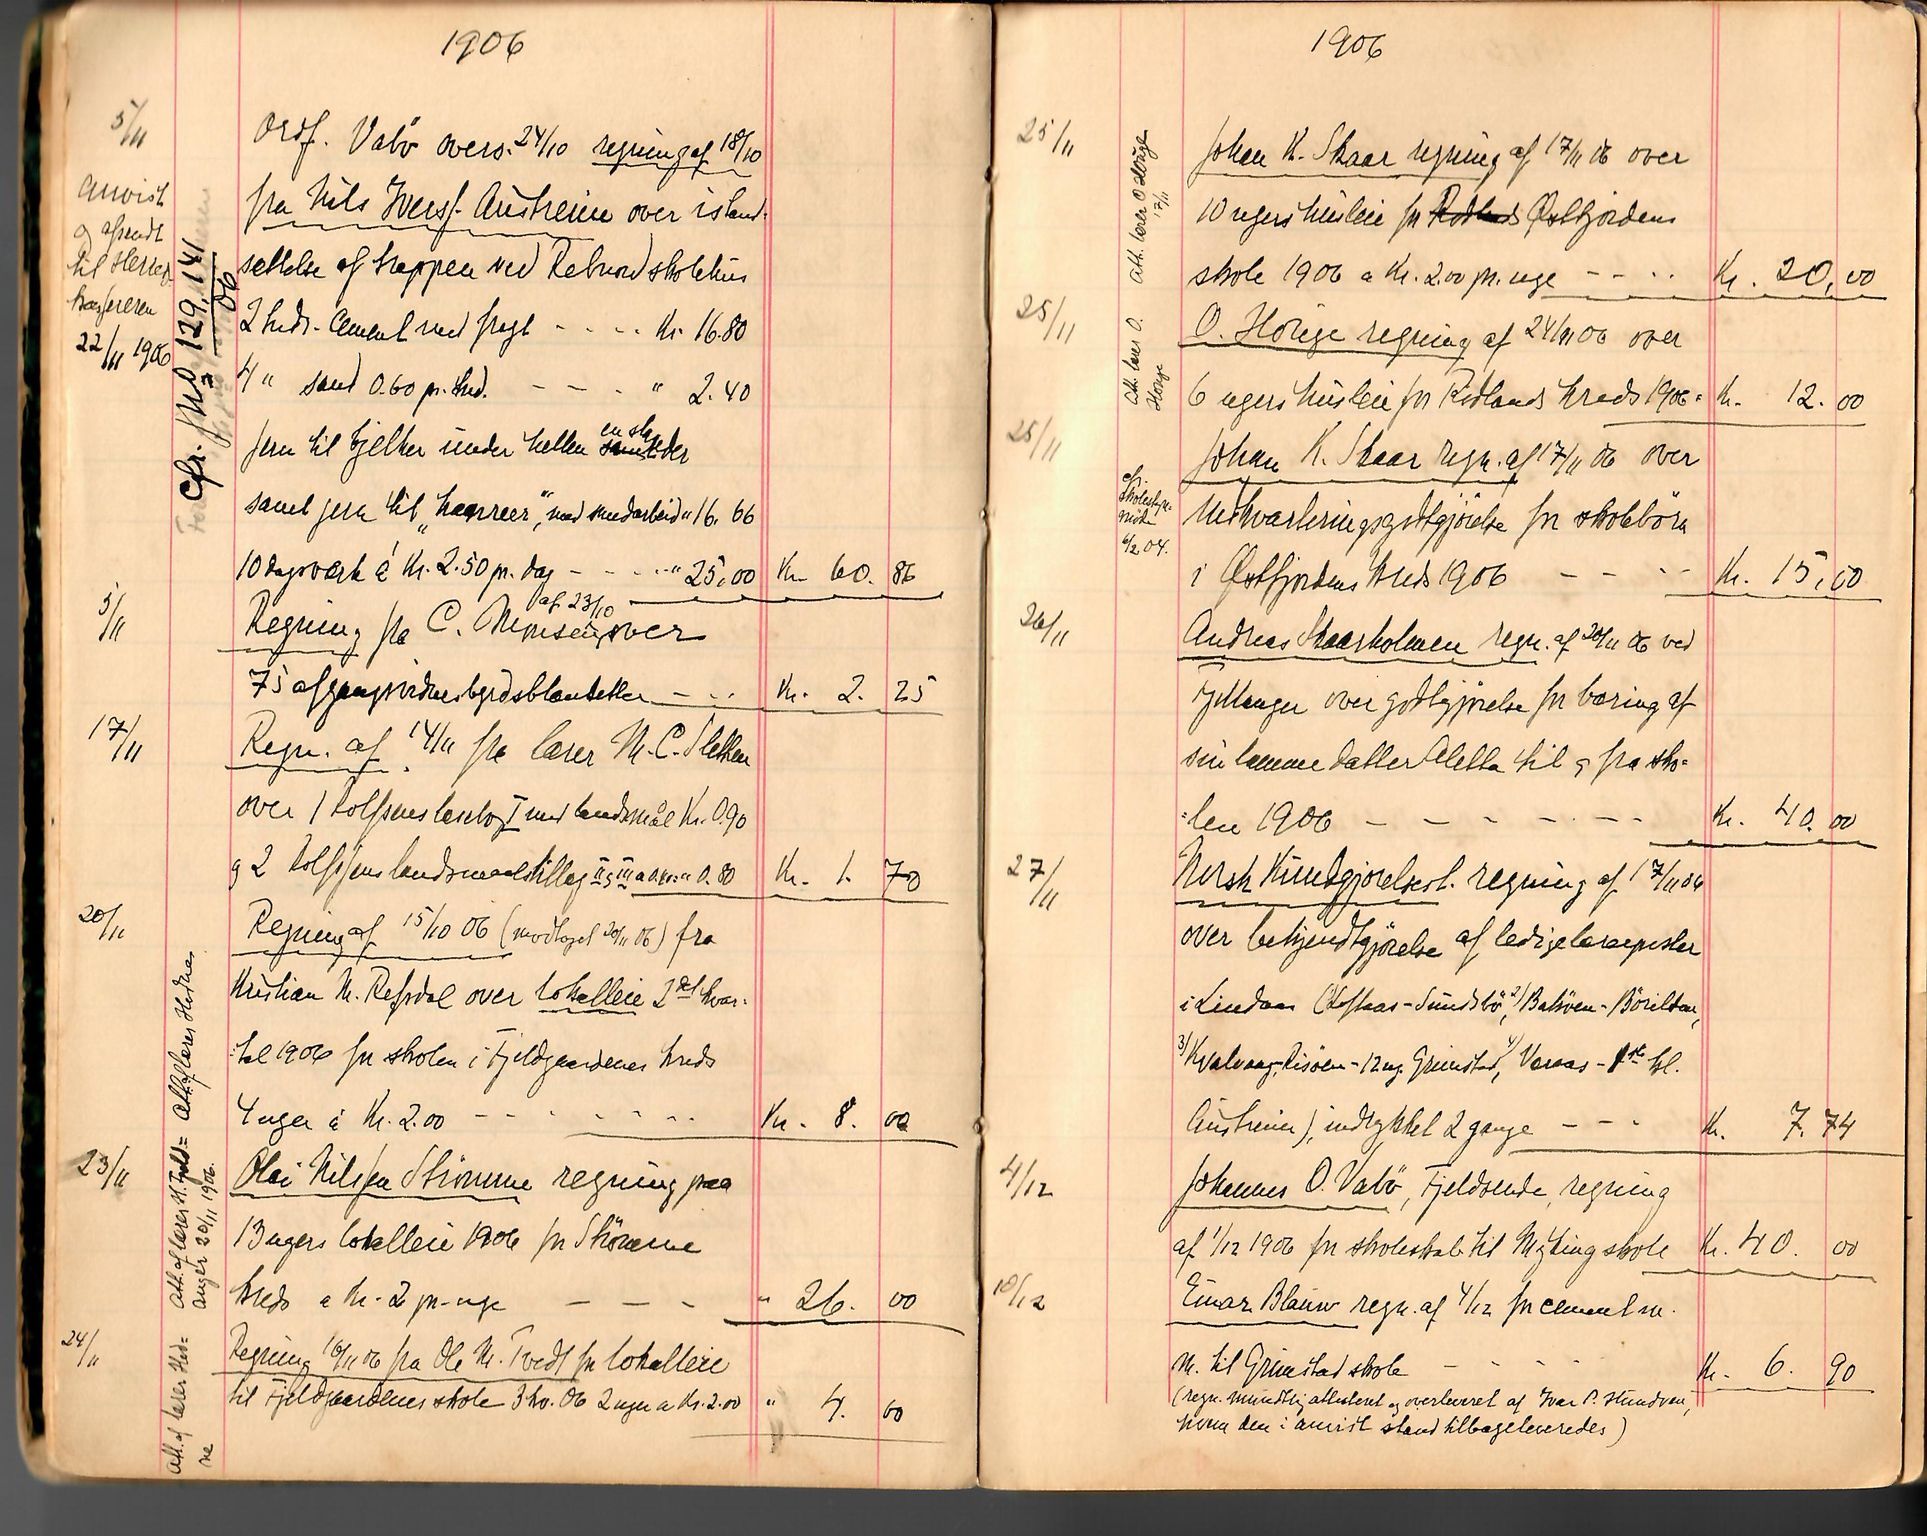 1906
5/11
Ordf. Vabö overs. 24/10 regning af 18/10
Anvist
og afsendt
til Herreds
kasereren
22/11 1906
fra Nils Iversf. Austreim over istand-
settelse af trappen ved Rebnord skolehus
2 hds. Cement med fragt - - - - Kr. 16.80
4 " sand 0.60 pr. hd. - - - - " 2.40
jern til bjelker under hellen
samt jern til "kaner", med smedarbeid " 16.66
10 dagsverk á Kr. 2.50 pr. dag - - - - " 25.00 Kr. 60. 86
cfr. 129, 141
06
5/11
Regning fra C. Monsen af 23/10 over
75 afgangsvidnesbyrdsblanketter - - - Kr. 2. 25
17/11
Regn. af 14/11 fra lærer M. C. Sletten
over 1 Rolfsens lesebog I med landsmål Kr. 0.90
og 2 Rolfsens landsmaalstillæg II og III a 0.40 " 0.80 Kr. 1. 70
20/11
Regning af 15/10 06 (modtaget 20/11 06) fra
Kristian M. Refsdal over lokalleie 2det kvar-
tal 1906 for skolen i Fjeldgaardenes kreds
4 uger á Kr. 2.00 - - - - - - Kr. 8. 00
Att. af lærer Hednes
23/11
Olai Nilsen Strömme regning paa
13 ugers lokalleie 1906 for Strömme
kreds a Kr. 2 pr. uge - - - " 26. 00
Att. af lærer H. Fjeld=
anger 20/11 1906.
24/11
Regning 16/11 06 fra Ole N. Tvedt for lokalleie
til Fjeldgaardenes skole 3 kv. 06 2 uger a Kr. 2.00 " 4. 00
Att. af lærer Hed=
ne
1906
25/11
Johan K. Skaar regning af 17/11 06 over
10 ugers husleie for Østfjordens
skole 1906 a Kr. 2.00 pr. uge - - - - Kr. 20,00
Att. lærer O Horge
17/11
25/11
O. Horge regning af 24/11 06 over
6 ugers husleie for Rödlands kreds 1906 = Kr. 12. 00
Att. lærer O.
Horge
25/11
Johan K. Skaar regn. af 17/11 06 over
Indkvarteringsgodtgjörelse for skolebörn
i Østfjordens kreds 1906 - - - - Kr. 15,00
cfr.
Skolestyre-
möde
6/2 04.
26/11
Andreas Skaarholmen regn. af 20/11 06 ved
Fjellanger over godtgjörelse for bæring af
sin lamme datter Aletta til og fra sko=
=len 1906 - - - - - - - Kr. 40. 00
27/11
Norsk Kundgjörelsest. regning af 17/11 06
over bekjendtgjörelse af ledige lærerposter
i Lindaas (Hofsaas - Sundsbö, 2) Baköen - Böröilden,
3) Kvalvaag, Risöen - 12 ug. Grimstad, 4) Varaas - 1ste kl.
Austreim), indrykket 2 gange - - - Kr. 7. 74
4/12
Johannes O. Vabö, Fjeldsende, regning
af 1/12 1906 for skoleskab til Myking skole Kr. 40. 00
10/12
Einar Blauw regn. af 4/12 for cement m.
m. til Grimstad skole - - - - - Kr. 6. 90
(regn. mundtlig attesteret og overleveret af Ivar P. Hundven,
hvem den i anvist stand tilbageleveredes)